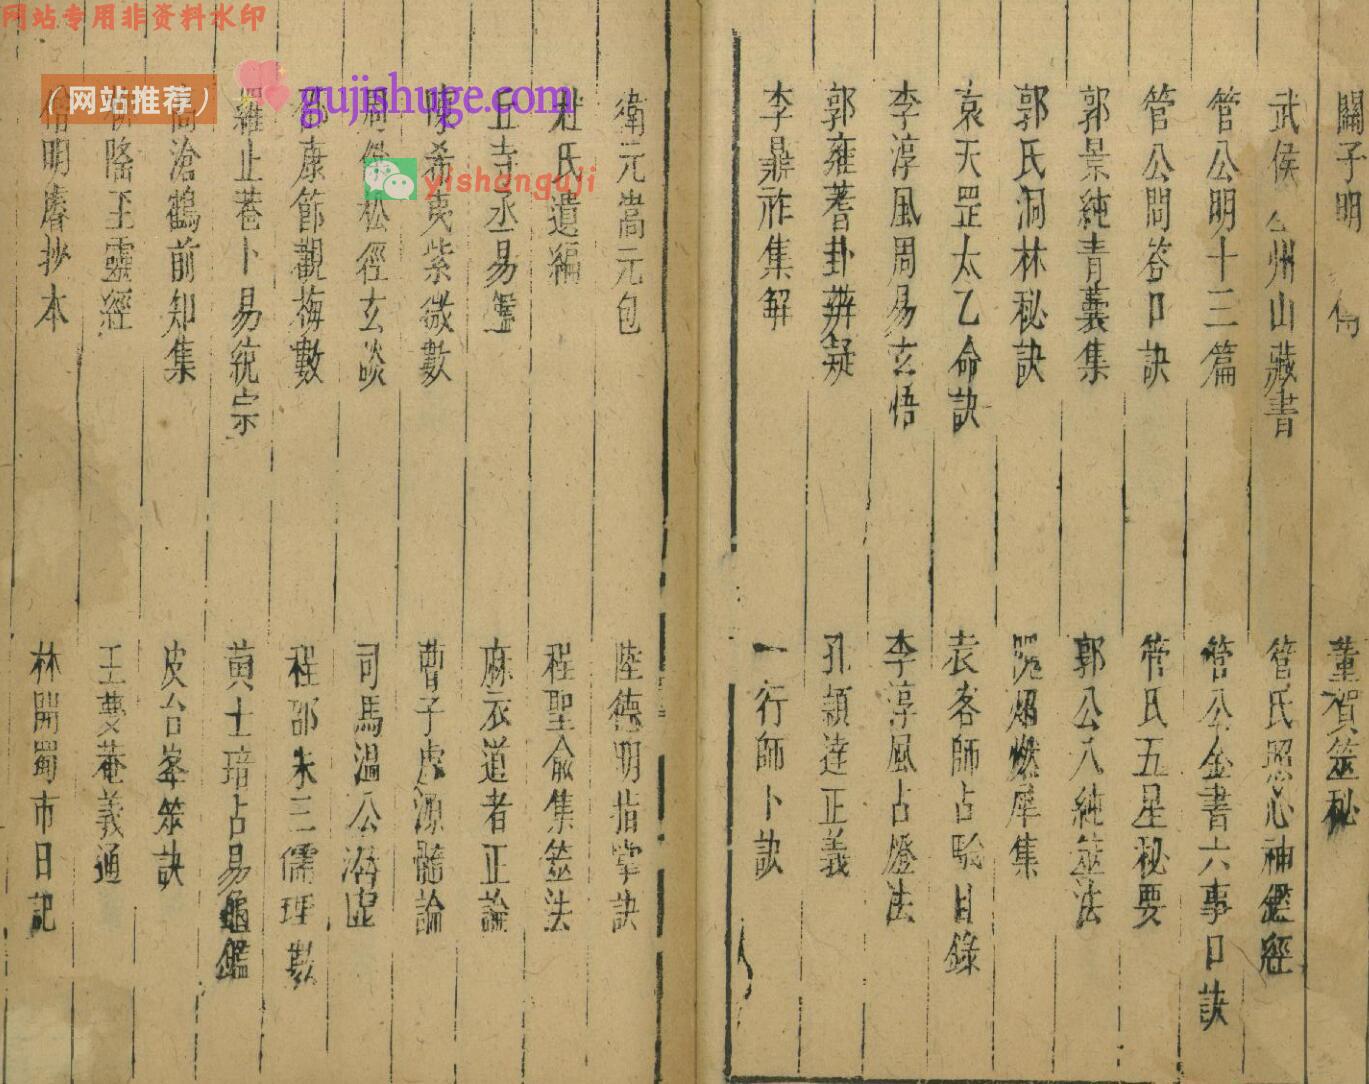 网站专用非资料水印
（网站推荐）
gujishuge.com
yishanguji
關子明　傳
董賀筮秘
武侯　州山藏書
管氏照心神鑑經
管公明十三篇
管公金書六事口訣
管公問答口訣
管氏五星秘要
郭景純青囊集
郭公八純筮法
郭氏洞林秘訣
燃犀集
袁天罡太乙命訣
袁客師占驗目錄
李淳風周易玄悟
李淳風占燈法
郭雍蓍卦辨疑
孔穎達正義
李鼎祚集解
一行師卜訣
衛元嵩元包
陸德明指掌訣
杜氏遺編
程聖俞集筮法
丘寺丞易鑑
麻衣道者正論
陳希夷紫微數
曹子虛源髓論
周　松經玄談
司馬溫公潛虛
邵康節觀梅數
程邵朱三儒理數
羅止菴卜易統宗
黃士琣占易龜鑑
滄鶴前知集
皮台峯筮訣
隆至靈經
王夔菴義通
明睿抄本
林開蜀市日記